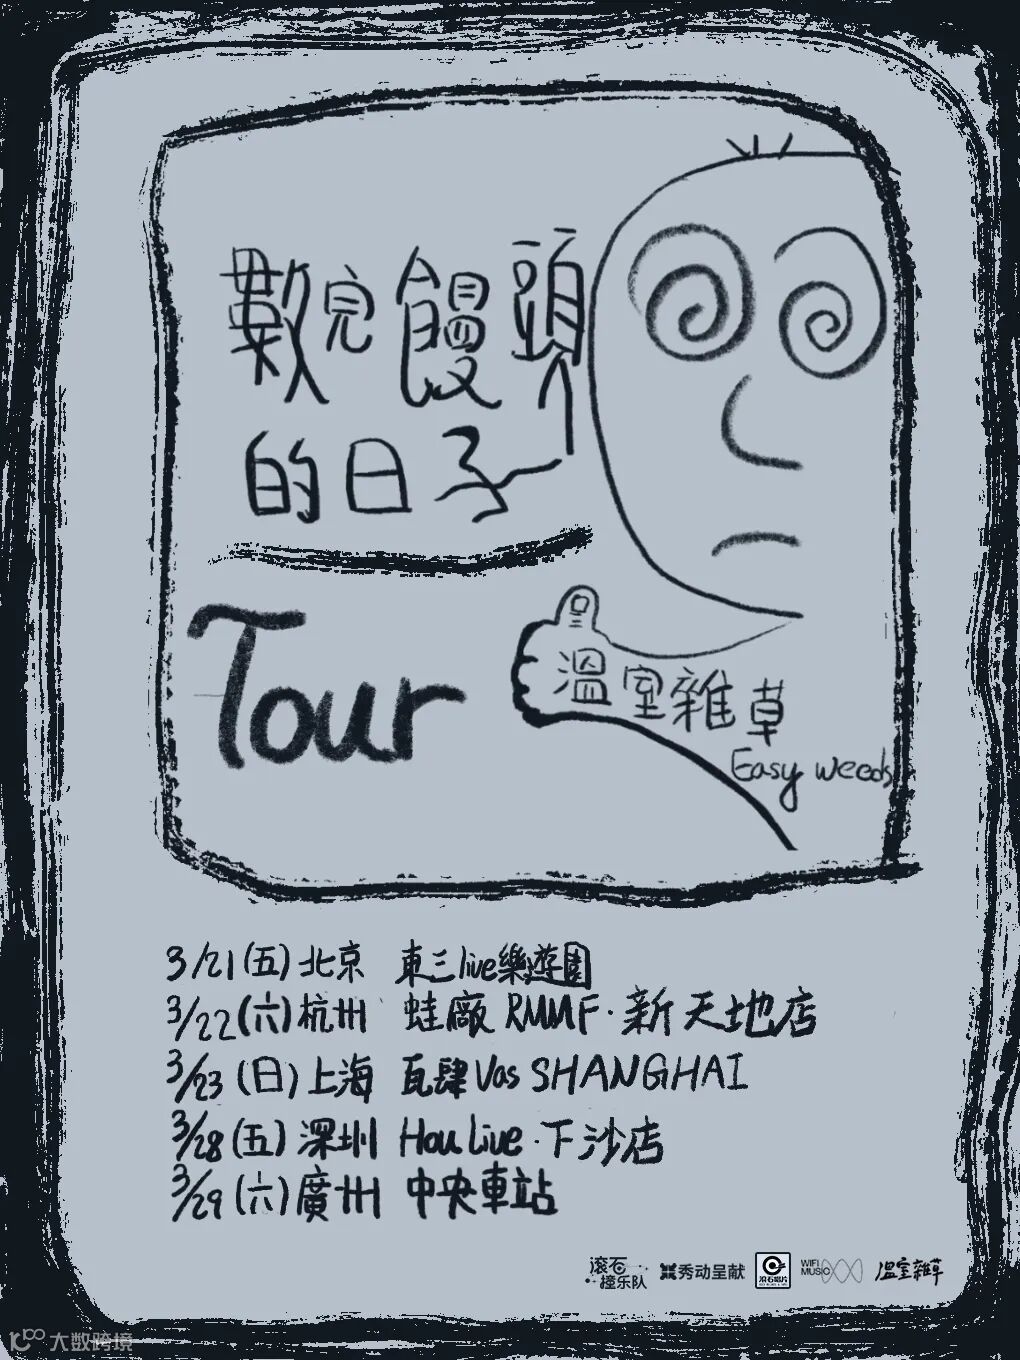 數完饅頭
的日子
Tour
溫室雜草
Easy weeds
3/21(五)北京 東三live樂遊園
3/22(六)杭州 蛙廠 RMMF·新天地店
3/23(日)上海 瓦肆Vas SHANGHAI
3/28(五)深圳 Hou Live·下沙店
3/29(六)廣州 中央車站
滚石撞乐队
秀动呈献
滚石唱片
WIFI MUSIC
溫室雜草
大数跨境